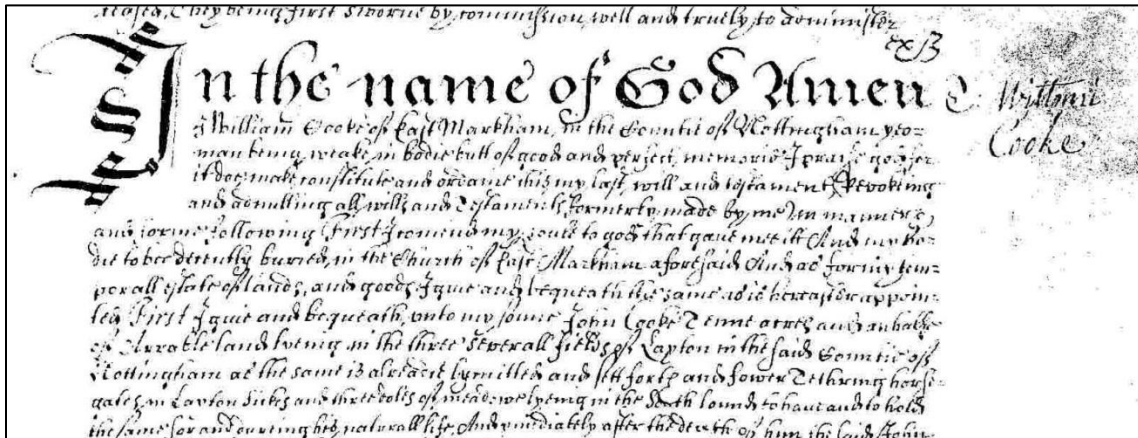 ceased, They being first sworne by commission, well and truely to administer
ex B
In the name of God Amen
William
Cooke
I William Cooke of East Markham, in the Countie of Nottingham yeo-
man being weake in bodie butt of good and perfect memorie I praise god for
it doe make constitute and ordaine this my last will and testament Revokeing
and adnulling all wills and Testaments formerly made by me In manner
and forme following First I comend my soule to god that gave mee itt And my bo-
die to bee decently buried in the Church of East Markham aforesaid And as for my tem-
porall estate of lands, and goods I give and bequeath the same as is hereafter appoin-
ted First I give and bequeath, unto my sonne John Cooke Tenne acres and an halfe
of Arrable land lyeing in the three severall fields of Laxton in the said Countie of
Nottingham as the same is alreadie lymitted and sett forth and fower Tethring horse
gates in Laxton Sikes and three doles of meadowe lyeing in the South lound to have and to hold
the same for and dureing his naturall life, And ymediately after the death of him the said John